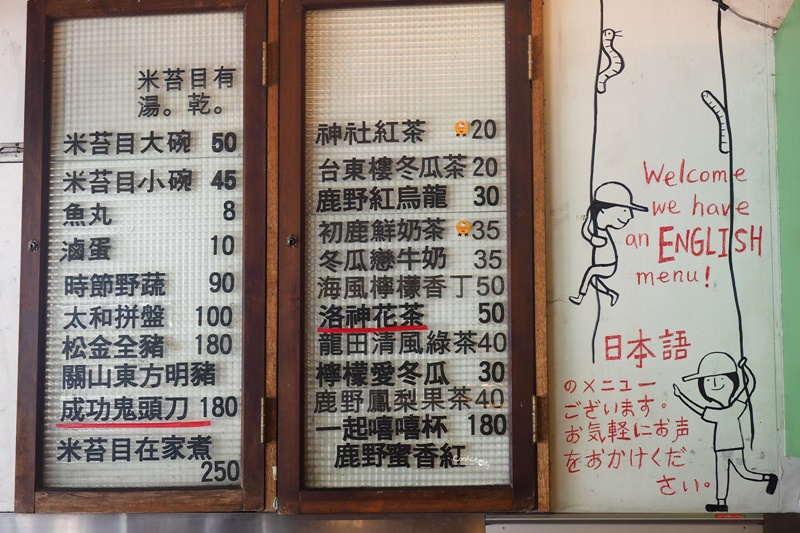 米苔目有
湯。乾。
米苔目大碗 50
米苔目小碗 45
魚丸 8
滷蛋 10
時節野蔬 90
太和拼盤 100
松金全豬 180
關山東方明豬
成功鬼頭刀 180
米苔目在家煮
250
神社紅茶 20
台東樓冬瓜茶 20
鹿野紅烏龍 30
初鹿鮮奶茶 35
冬瓜戀牛奶 35
海風檸檬香丁 50
洛神花茶 50
龍田清風綠茶 40
檸檬愛冬瓜 30
鹿野鳳梨果茶 40
一起嘻嘻杯 180
鹿野蜜香紅
Welcome
we have
an ENGLISH
menu!
日本語
のメニュー
ございます。
お気軽にお声
をおかけくだ
さい。